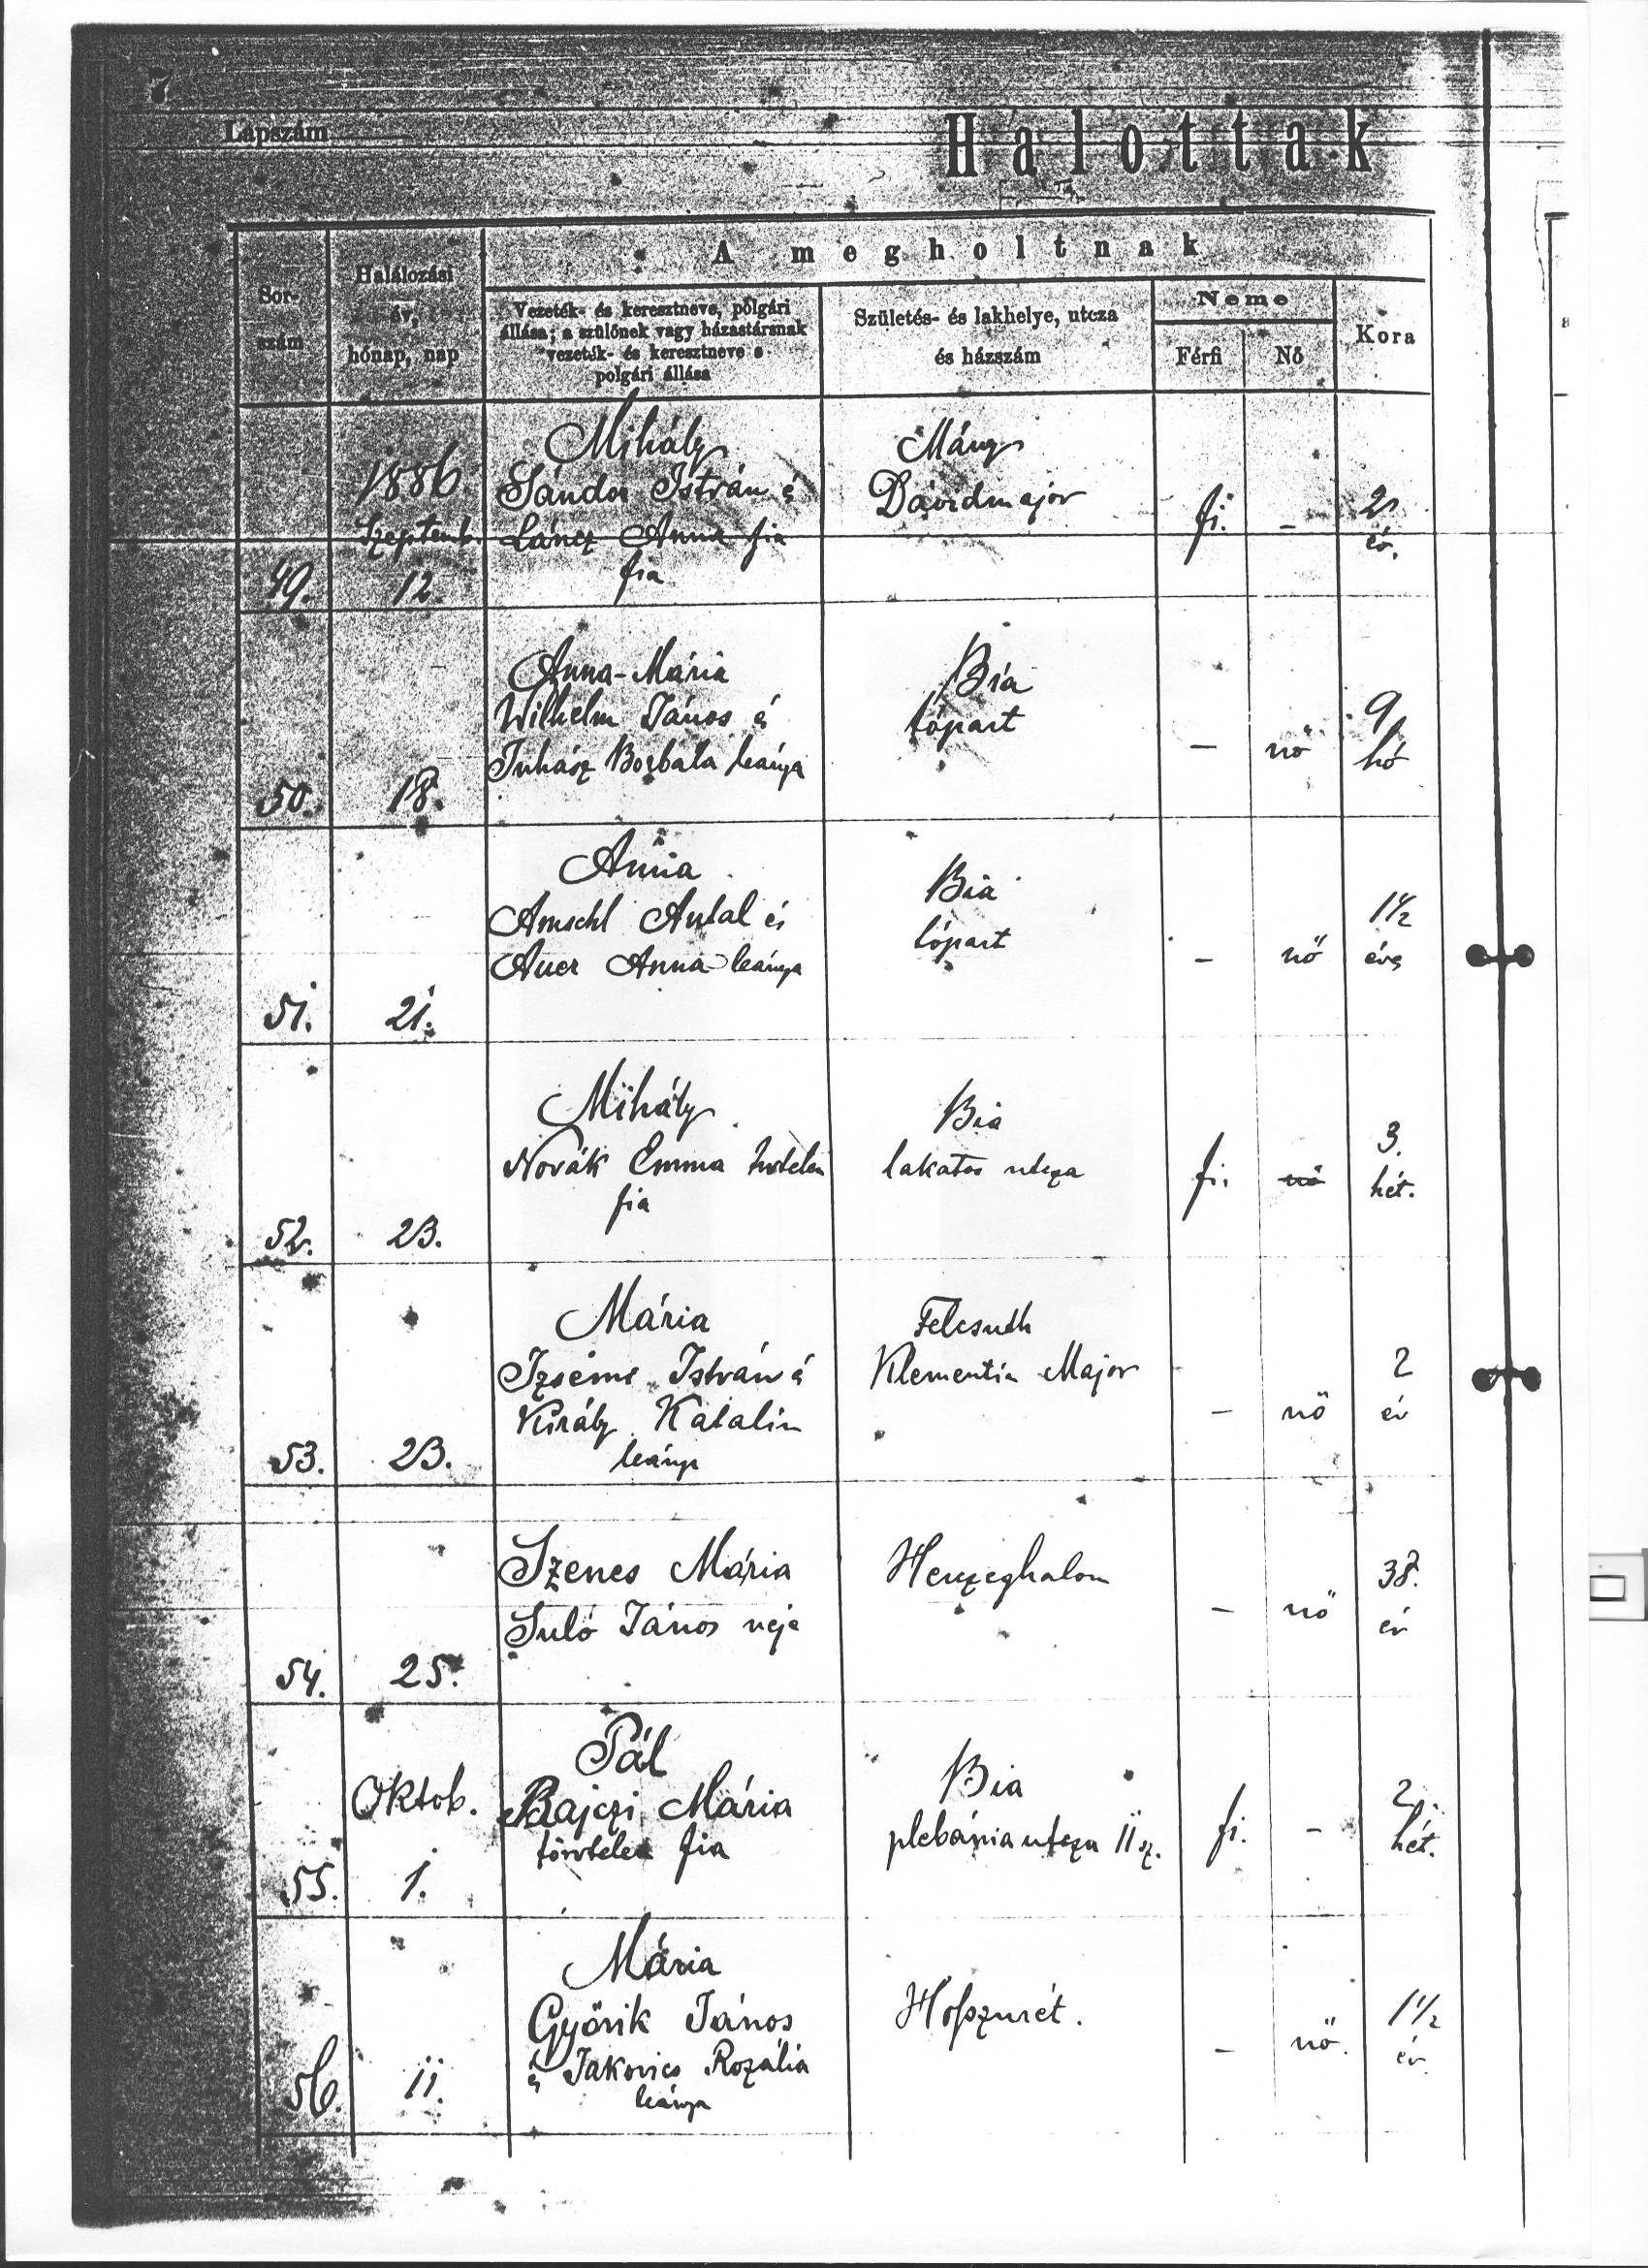 7
Lapszám
Halottak
A megholtnak
Sor-
szám
Halálozási
év,
hónap, nap
Vezeték- és keresztneve, polgári
állása; a szülőnek vagy házastársnak
vezeték- és keresztneve s
polgári állása
Születés- és lakhelye, utcza
és házszám
Neme
Férfi
Nő
Kora
49.
1886
Szeptemb.
12.
Mihály
Sándor István é
Láncz Anna fia
fia
Mány
Dávidmajor
fi.
-
2
év.
50.
18.
Anna-Mária
Wilhelm János é
Juhász Borbála leánya
Bia
lópart
-
nő
9
hó
51.
21.
Anna
Amschl Antal és
Auer Anna leánya
Bia
lópart
-
nő
1 1/2
éves
52.
23.
Mihály
Novák Emma
fia
Bia
lakatos utcza
fi.
nő
3.
hét.
53.
23.
Mária
István é
Király Katalin
leánya
Felcsuth
Klementin Major
-
nő
2
év
54.
25.
Szenes Mária
Suló János neje
Herczeghalom
-
nő
38.
év
55.
Oktob.
1.
Pál
Bajczi Mária
törvtélen fia
Bia
plebánia utcza 11 sz.
fi.
-
2
hét.
56.
11.
Mária
Győrik János
é Jakovics Rozália
leánya
Hoszurét.
-
nő.
1 1/2
év.